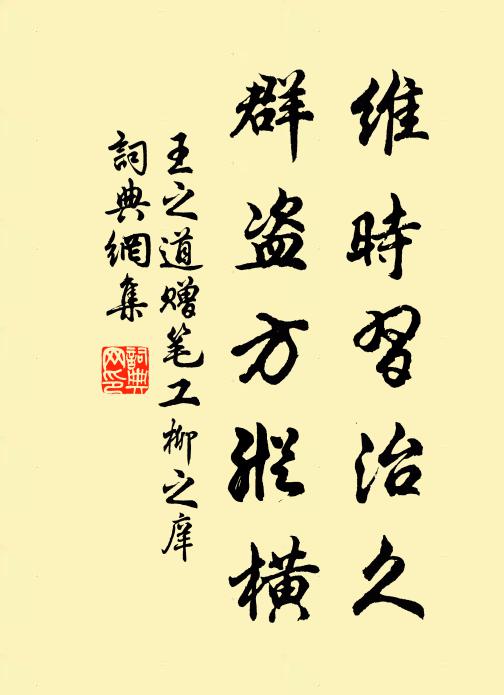 維時習治久
群盗方縱橫
王之道贈笔工柳之庠
詞典網集
詞典網印